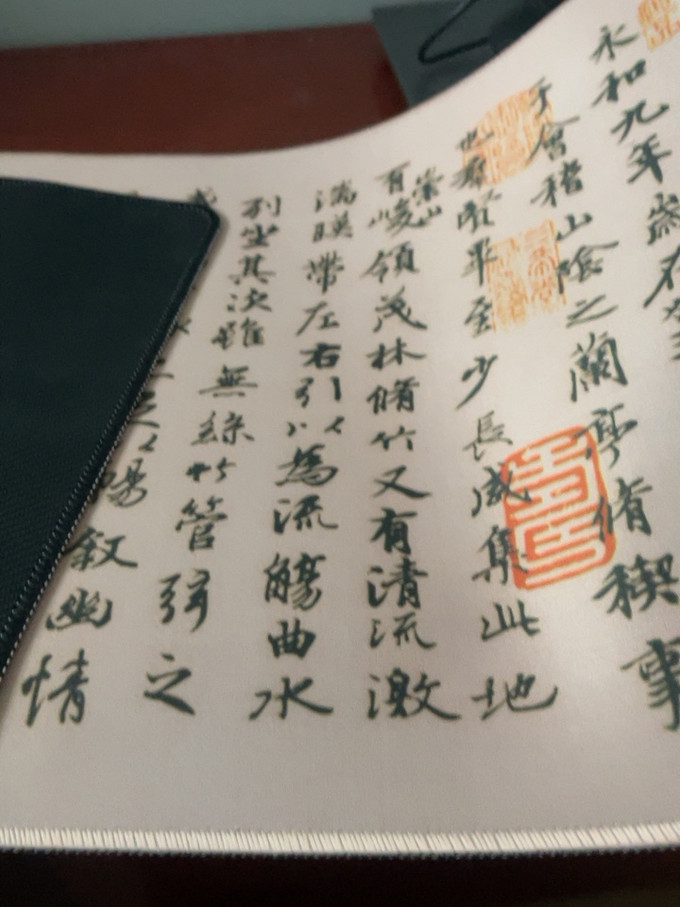 永和九年歲在癸
于會稽山陰之蘭亭脩禊事
也群賢畢至少長咸集此地
有崇山峻領茂林脩竹又有清流激
湍暎帶左右引以為流觴曲水
列坐其次雖無絲竹管弦之
以暢叙幽情